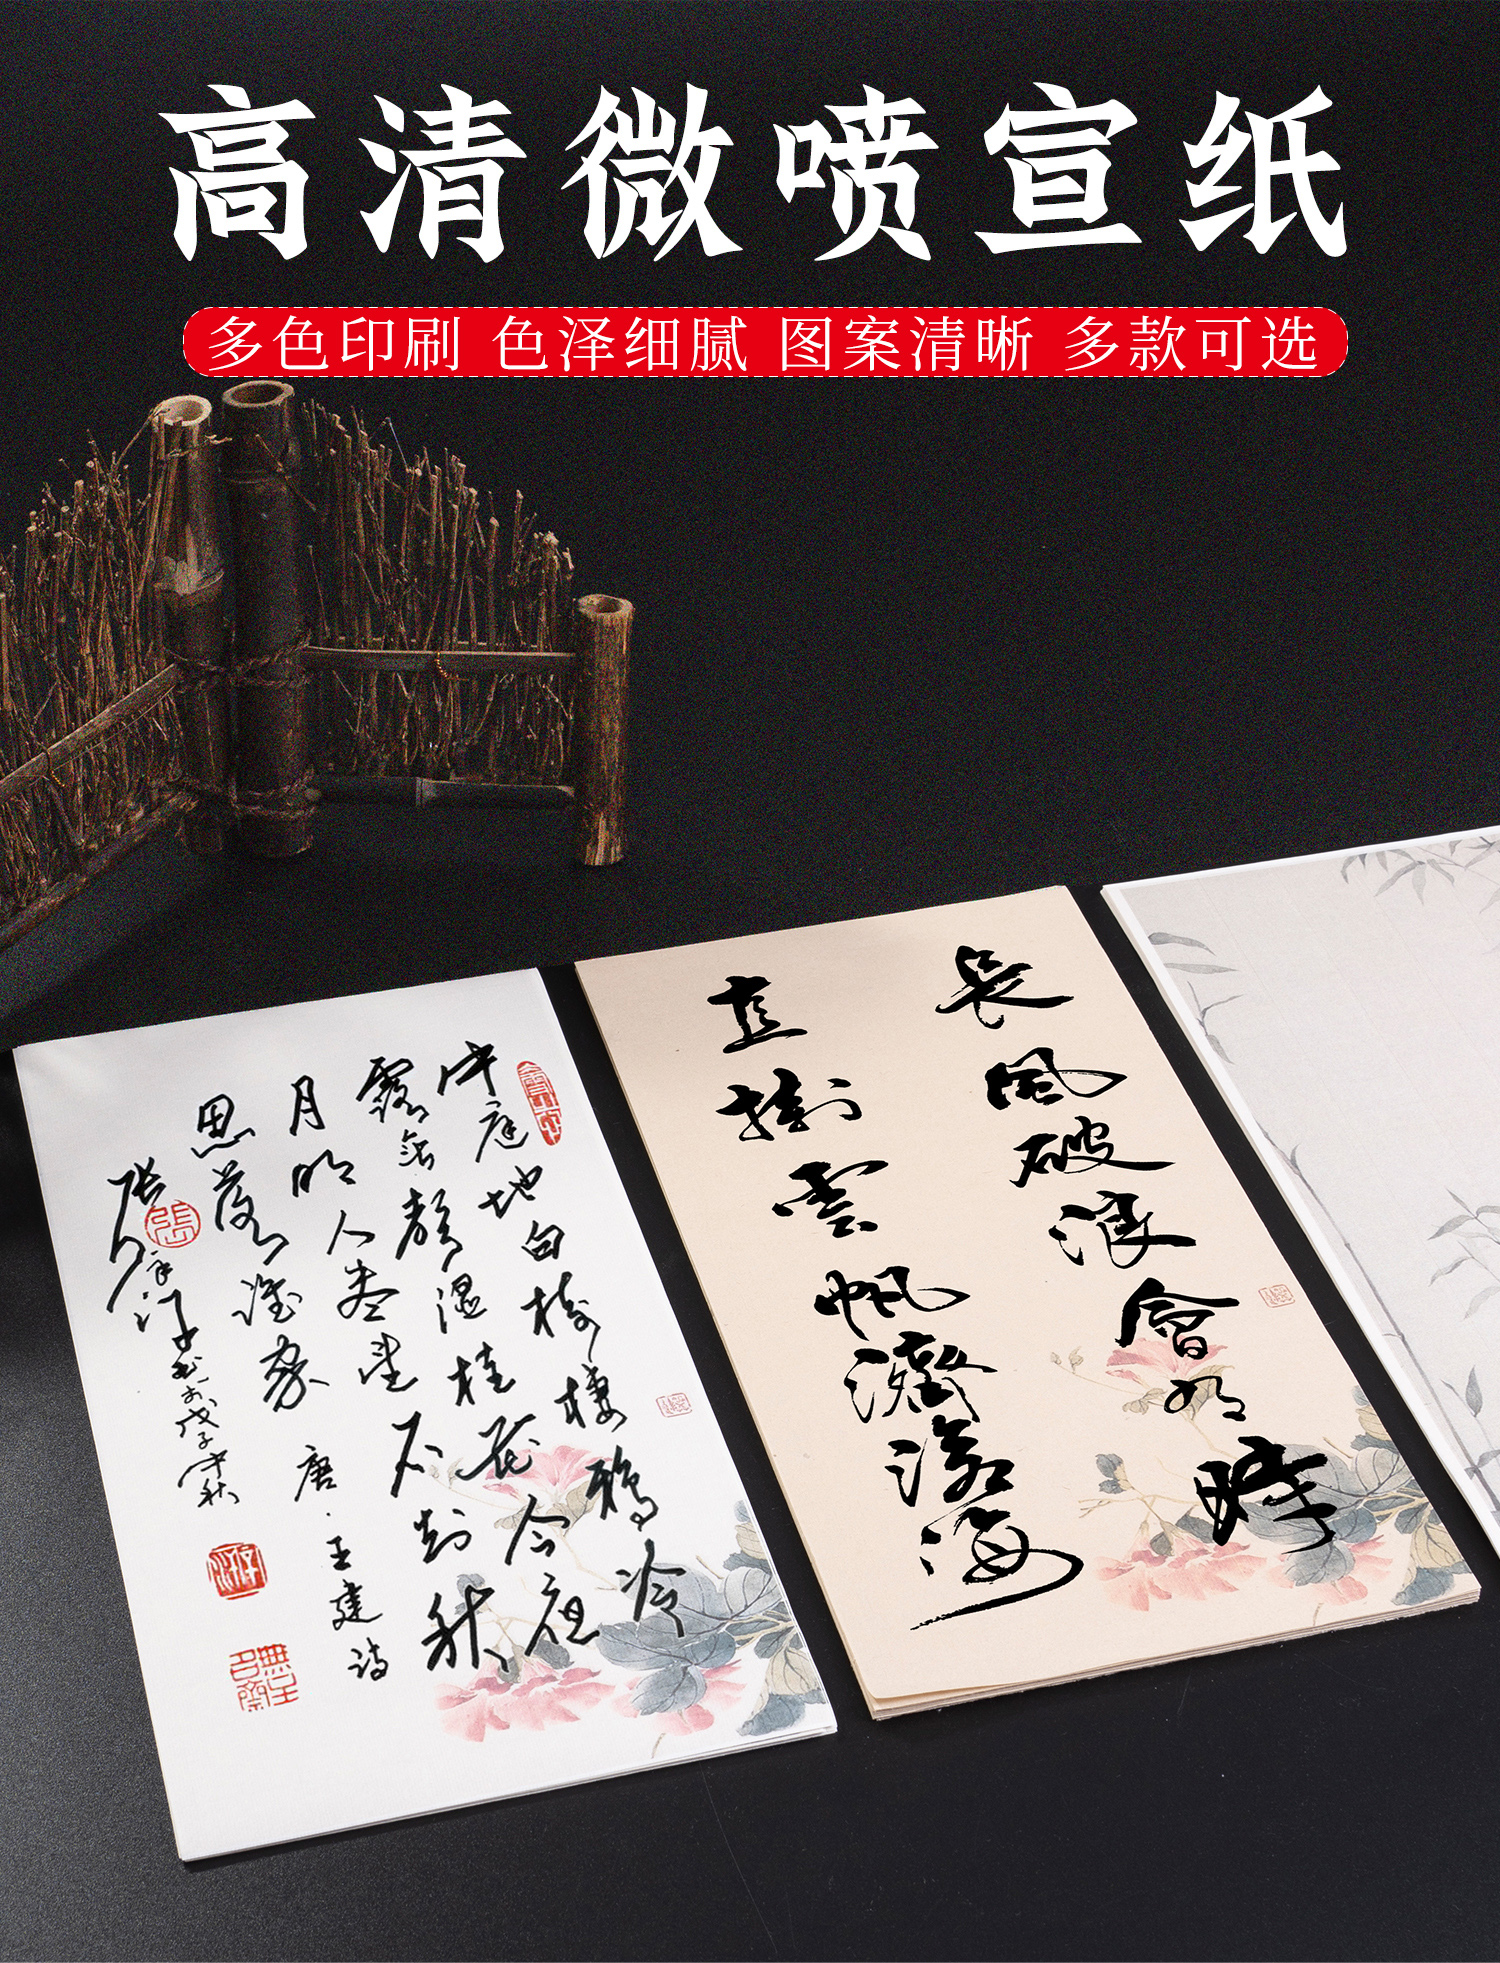 高清微喷宣纸
多色印刷 色泽细腻 图案清晰 多款可选
中庭地白树栖鸦冷
露无声湿桂花今夜
月明人尽望不知秋
思落谁家 唐·王建诗
戊子中秋
張
長風破浪會有時
直掛雲帆濟滄海